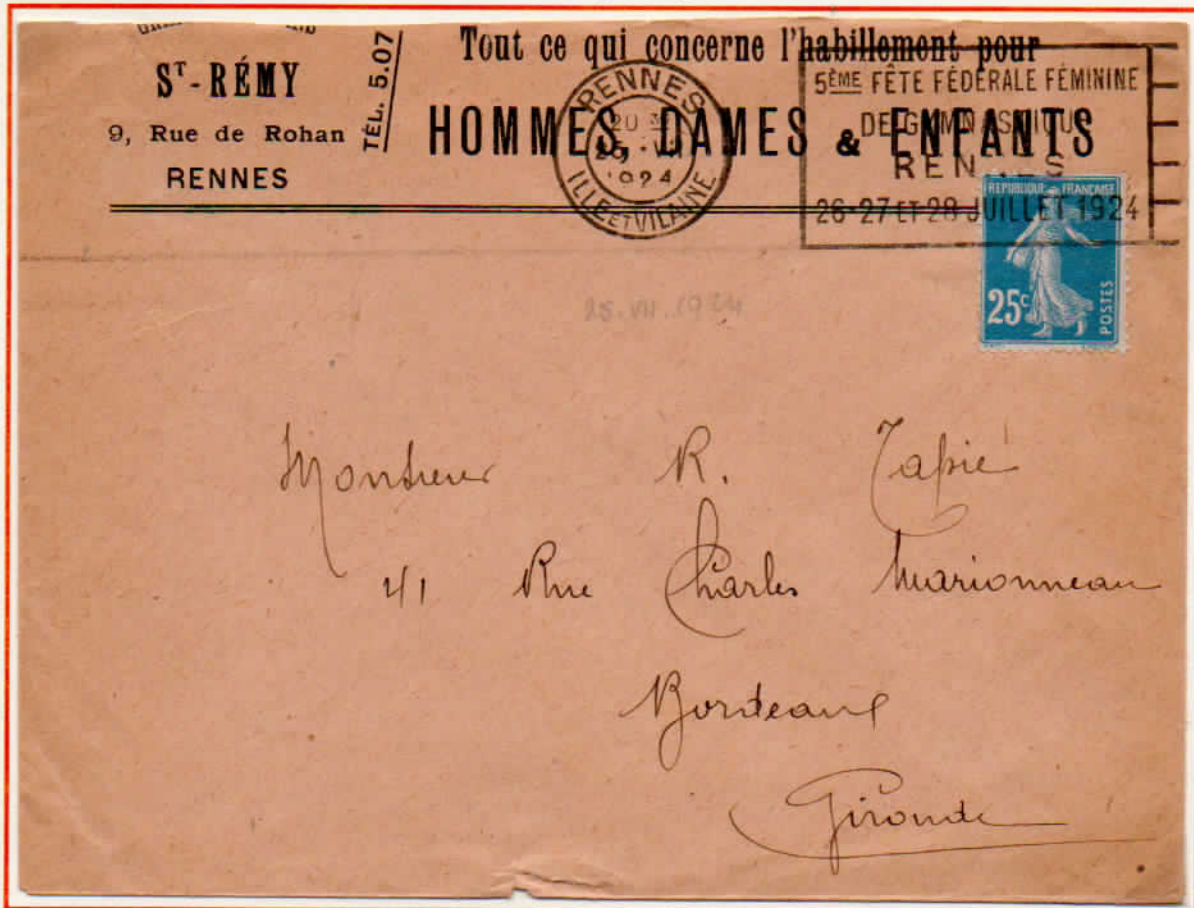 ST-RÉMY
9, Rue de Rohan
RENNES
TÉL. 5.07
Tout ce qui concerne l'habillement pour
HOMMES, DAMES & ENFANTS
RENNES
1924
ILLE ET VILAINE
5ÈME FÊTE FÉDÉRALE FÉMININE
DE GYMNASTIQUE
RENNES
26-27 ET 28 JUILLET 1924
REPUBLIQUE FRANÇAISE
25c
POSTES
25.VII.1924
Monsieur R. Tapié
41 Rue Charles Marionneau
Bordeaux
Gironde